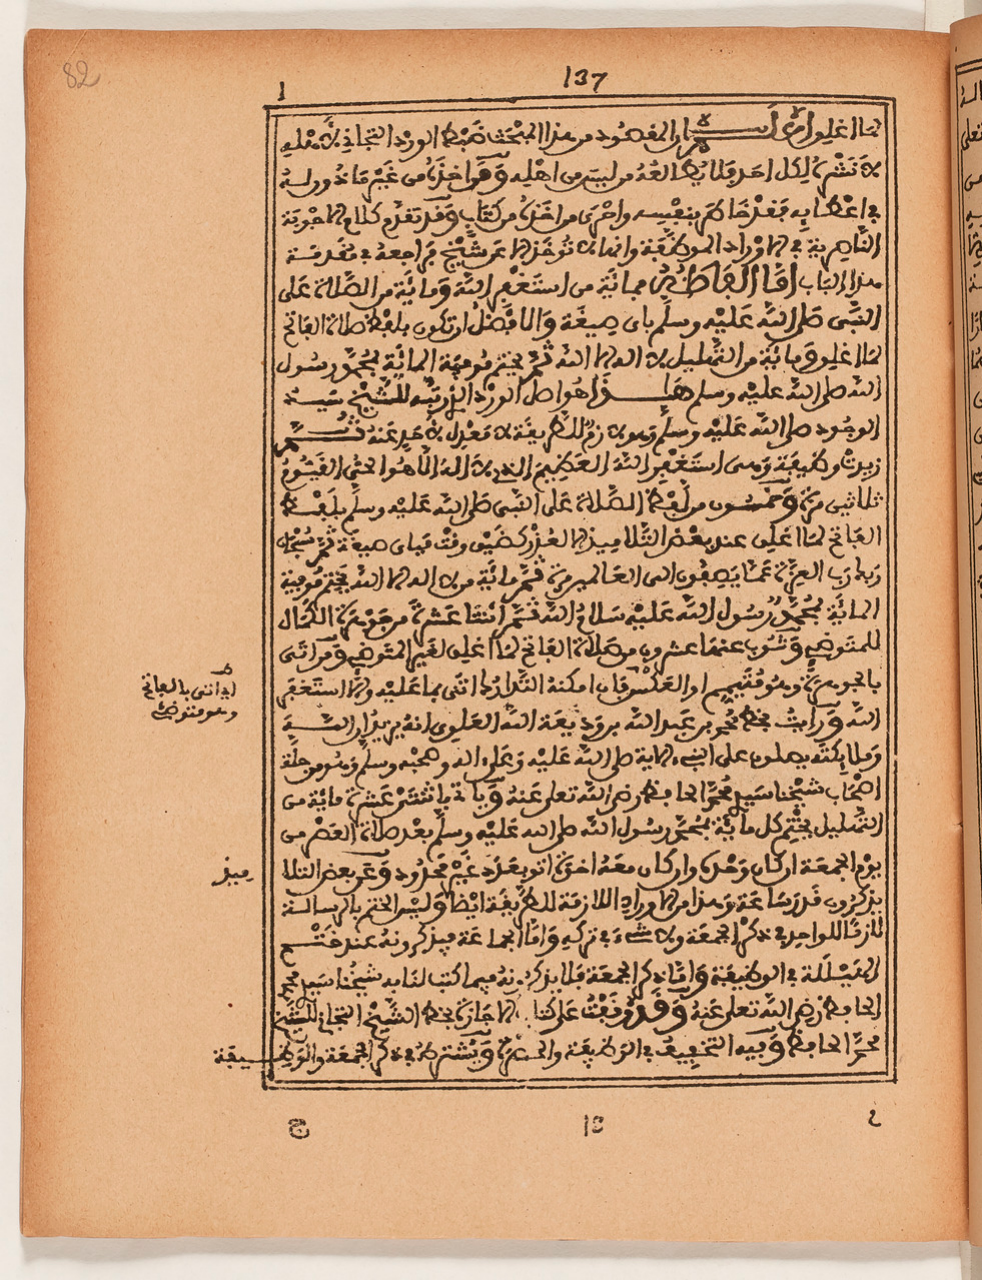 82
137
ا
لما اغلق المقصود من هذا المبحث ضبط الورد التجاني لاهله
لا نشره لكل احد فلا يطالعه من ليس من اهله وهو اخذه من غير ماذون له
في اعطايه فغرضا كم بنفسه واحرى من اخذه من كتاب وقد تقدم كلام الاجوبة
الناصرية في الاوراد الموظفة وانها لا تؤخذ الا عن شيخ فراجعه في مقدمة
هذا الباب اما الفاظه فماية من استغفر الله وماية من الصلاة على
النبي صلى الله عليه وسلم باي صيغة والافضل ان تكون بلفظ صلاة الفاتح
لما اغلق وماية من التهليل لا اله الا الله ثم يختم موفية الماية بمحمد رسول
الله صلى الله عليه وسلم هذا هو اصل الورد الذي رتبه للشيخ سيد
الوجود صلى الله عليه وسلم وهو لازم للطريقة لا معدل لاحد عنه ثم
زيدت وظيفة وهي استغفر الله العظيم الذي لا اله الا هو الحي القيوم
ثلاثين مرة وخمسون من لفظ الصلاة على النبي صلى الله عليه وسلم بلفظ
الفاتح لما اغلق عند بعض التلاميذ الا لعذر كضيق وقت فباي صيغة ثم سبحان
ربك رب العزة عما يصفون الى العالمين مرة ثم ماية من لا اله الا الله يختم موفية
الماية بمحمد رسول الله عليه سلام الله ثم اثنتا عشرة من جوهرة الكمال
للمتوضئ وتنوب عنها عشرون من صلاة الفاتح لما اغلق لغير المتوضئ ومن اتى
بالجوهرة وهو متيمم او العكس فان امكنه التدارك اتى بما عليه والا استغفر
الله ورايت بخط محمد بن عبد الله بن وديعة الله العلوي انه يزيد ان الله
وملايكته يصلون على النبي الاية صلى الله عليه وعلى اله وصحبه وسلم وهو من جلة
اصحاب شيخنا سيد محمد الحافظ رضي الله تعلى عنه وياتي باثنتي عشرة ماية من
التهليل يختم كل ماية بمحمد رسول الله صلى الله عليه وسلم بعد صلاة العصر من
يوم الجمعة ان كان وحده وان كان معه اخوة اتى بعدد غير محدود وعن بعض التلا
يذكرون قدر ساعة وهذا من الاوراد اللازمة للطريقة ايضا وليس الختم بالرسالة
لازما للواحد في ذكر الجمعة ولا شيء في تركه واما الجماعة فيذكرونه عند ختم
الهيللة في الوظيفة واما ذكر الجمعة فلا يذكرونه فيما كتب لنا به شيخنا سيد محمد
الحافظ رضي الله تعلى عنه وقد وقفت على كتاب الاجازة بخط الشيخ التجاني للشيخ
محمد الحافظ وفيه التخفيف في الوظيفة والحضرة ويشترط في ذكر الجمعة والوظيفة
اي اتى بالفاتح
وهو متوضئ
ميذ